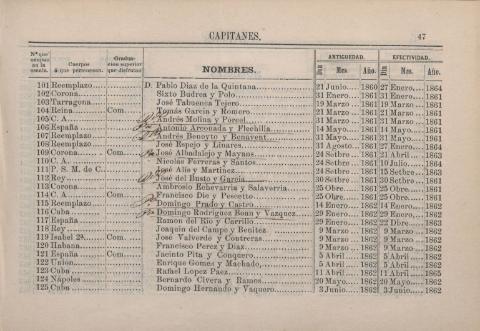 CAPITANES. 47
Nº que ocupan en la escala. Cuerpos á que pertenecen. Graduacion superior que disfrutan NOMBRES. ANTIGÜEDAD. EFECTIVIDAD.
Dia Mes. Año. Dia Mes. Año.
101 Reemplazo D. Pablo Diaz de la Quintana 21 Junio 1860 27 Enero 1864
102 Corona Sixto Budrea y Polo 31 Enero 1861 31 Enero 1861
103 Tarragona José Tabuenca Tejero 19 Marzo 1861 19 Marzo 1861
104 Reina Com. Tomás García y Romero 21 Marzo 1861 21 Marzo 1861
105 C. A. Andrés Molina y Porcel 31 Marzo 1861 31 Marzo 1861
106 España Antonio Arconada y Flechilla 14 Mayo 1861 14 Mayo 1861
107 Reemplazo Andrés Benoyto y Benavent 31 Mayo 1861 31 Mayo 1861
108 Reemplazo José Espejo y Linares 31 Agosto 1861 31 Enero
109 Corona Com. José Albadalejo y Maynos 24 Setbre 1861 21 Abril 1863
110 C. A. Nicolás Ferreras y Santos 24 Setbre 1861 10 Julio 1864
111 P. S. M. de C. José Alís y Martínez 24 Setbre 1861 15 Setbre 1863
112 Rey José del Busto y García 30 Setbre 1861 30 Setbre 1861
113 Corona Ambrosio Echevarria y Salaverria 25 Obre 1861 25 Obre 1861
114 C. A. Com. Francisco Die y Pescetto 31 Obre 1861 31 Obre 1861
115 Reemplazo Domingo Prado y Castro 14 Enero 1862 14 Enero 1862
116 Cuba Domingo Rodriguez Boan y Vazquez 29 Enero 1862 29 Enero 1862
117 España Ramon del Rio y Cornille 29 Enero 1862 22 Dbre 1862
118 Rey Joaquin del Campo y Benitez 9 Marzo 1862 9 Marzo 1862
119 Isabel 2ª Com. José Valverde y Contreras 9 Marzo 1862 9 Marzo 1862
120 Habana Francisco Perez y Diaz 9 Marzo 1862 9 Marzo 1862
121 España Com. Jacinto Pita y Conquero 5 Abril 1862 5 Abril 1862
122 Union Enrique Gomez y Machado, 5 Abril 1862 5 Abril 1862
123 Cuba Rafael Lopez Páez 11 Abril 1862 11 Abril 1865
124 Nápoles Bernardo Civera y Ramos 20 Mayo 1862 20 Mayo 1862
125 Cuba Domingo Hernando y Vaquero 3 Junio 1862 3 Junio 1862